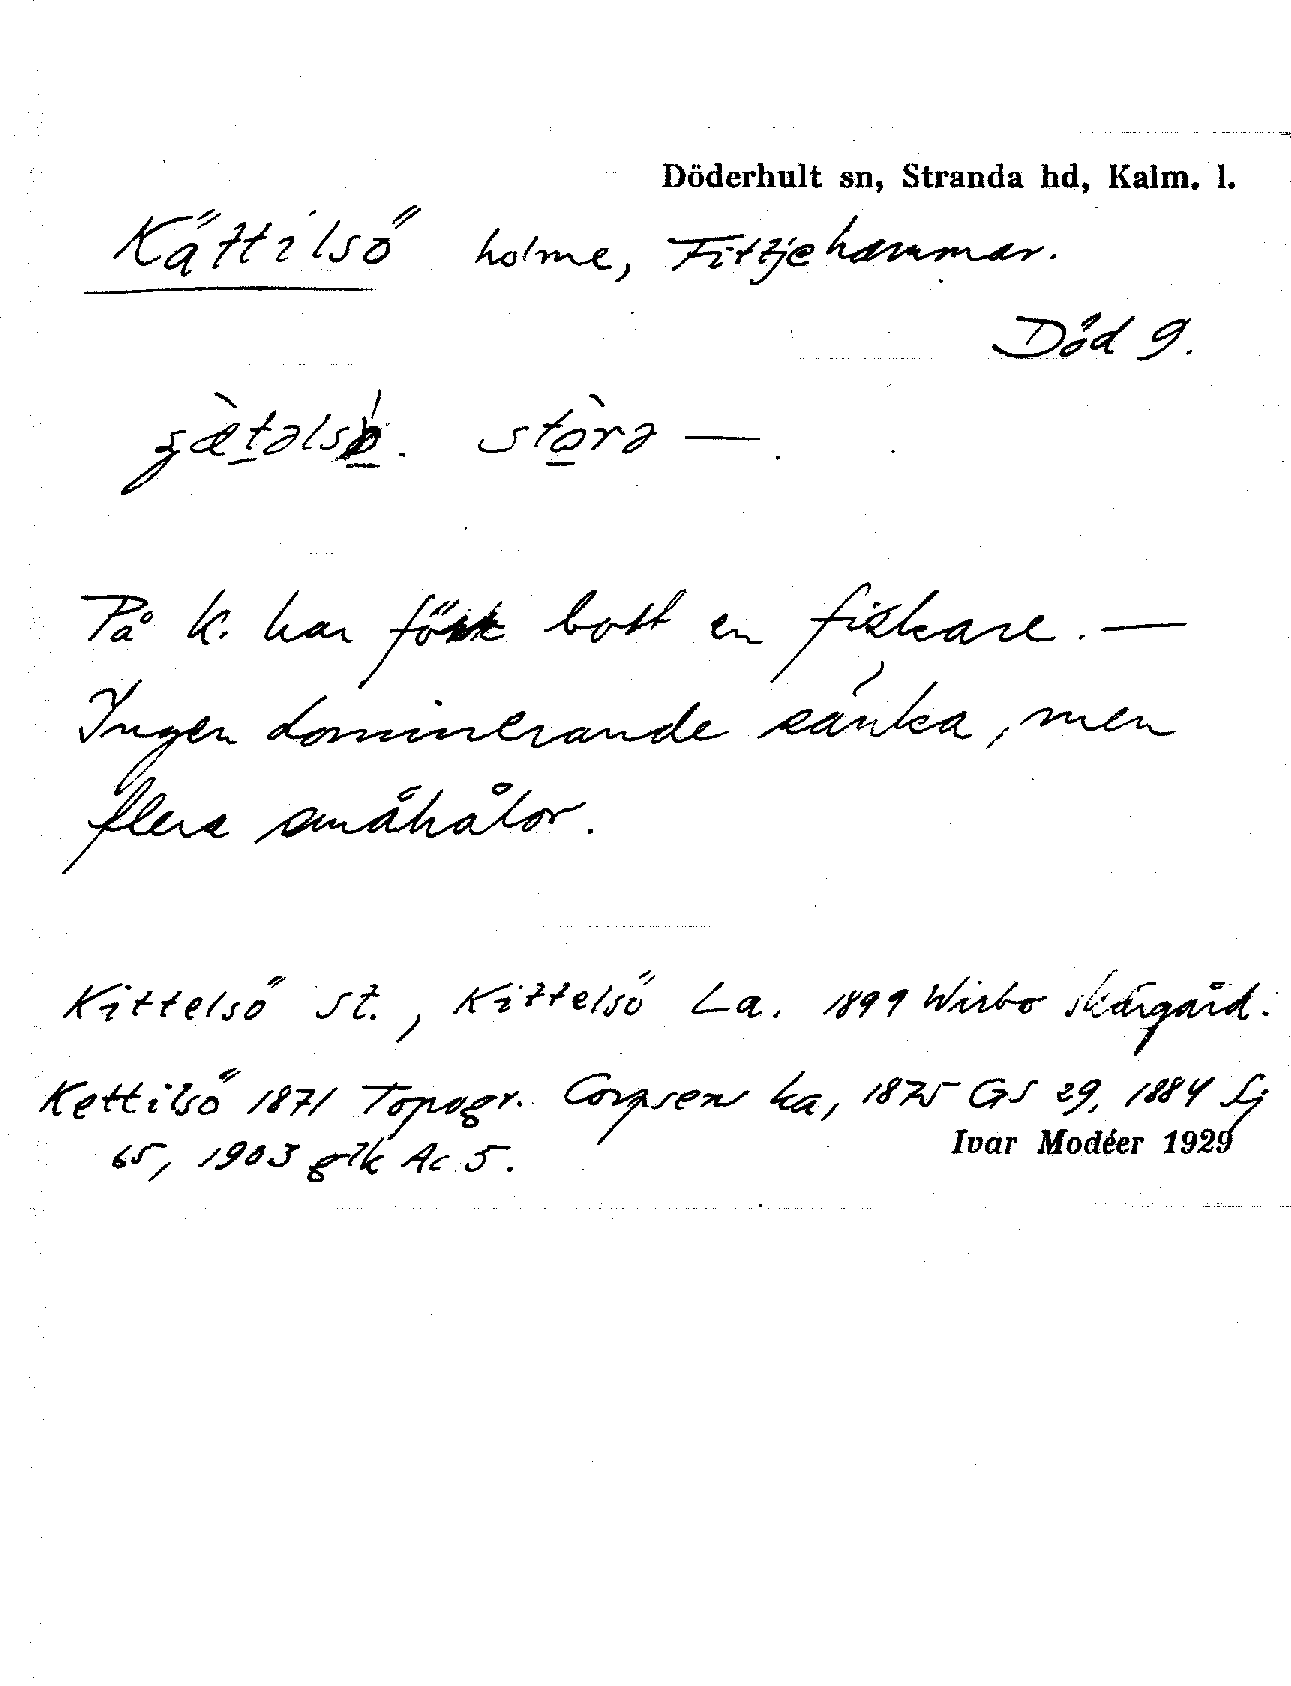 Döderhult sn, Stranda hd, Kalm. l.
Kättilsö holme, Fittjehammar.
Död 9.
stòrə —.
På K. har förr bott en fiskare. —
Ingen dominerande sänka, men
flera småhålor.
Kittelsö St., Kittelsö La. 1899 Wirbo skärgård.
Kettilsö 1871 Topogr. Corpsens ka, 1875 GS 29, 1884 Sj
65, 1903 glk Ac 5.
Ivar Modéer 1929